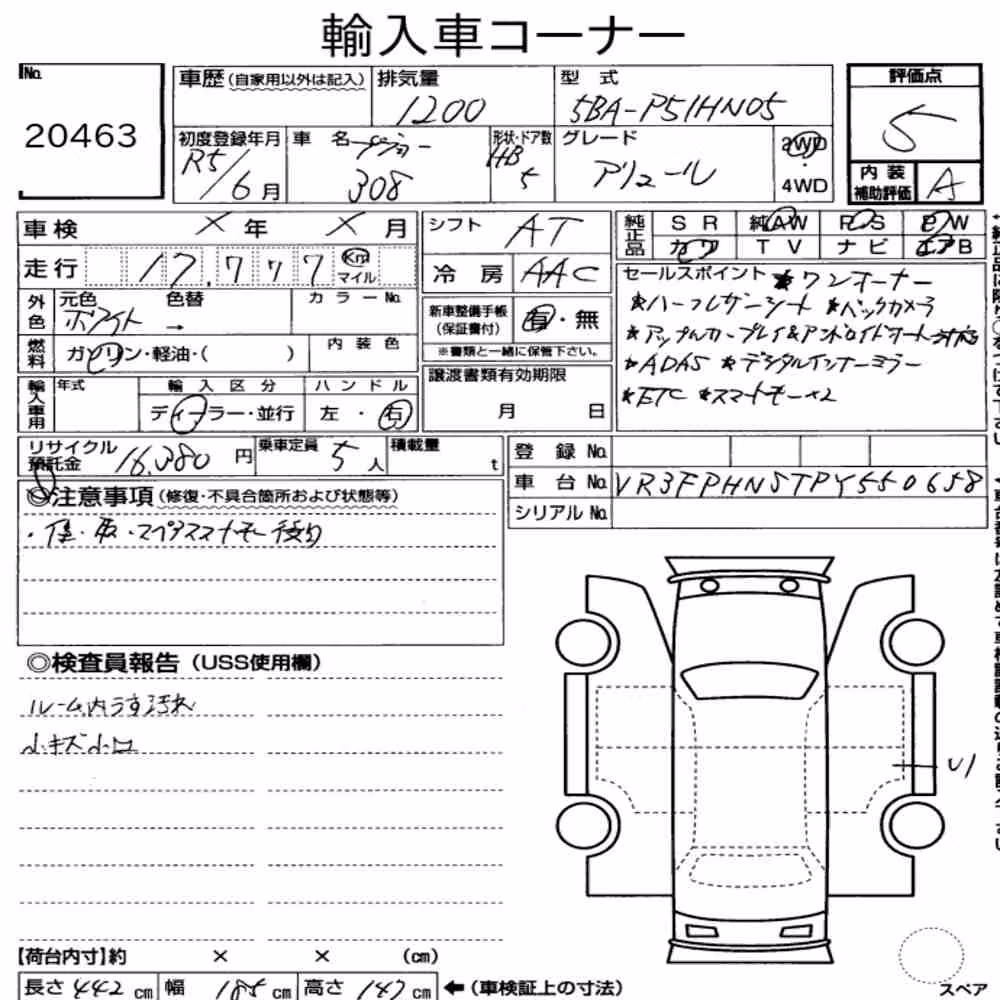 輸入車コーナー
No. 20463
車歴(自家用以外は記入)
排気量 1200
型式 5BA-P51HN05
評価点 5
初度登録年月 R5/6月
車名 プジョー 308
形状・ドア数 HB 5
グレード アリュール
2WD・4WD
内装補助評価 A
車検 ×年 ×月
シフト AT
純正品 SR 純AW PS PW
カワ TV ナビ エアB
走行 17,777 Km マイル
冷房 AAC
外色 元色 ホワイト → 色替 カラーNo.
新車整備手帳(保証書付) 有・無
※書類と一緒に保管下さい。
燃料 ガソリン・軽油・( ) 内装色
セールスポイント ★ワンオーナー
★ハーフレザーシート ★バックカメラ
★アップルカープレイ&アンドロイドオート対応
★ADAS ★デジタルインナーミラー
★ETC ★スマートキー×2
輸入車用 年式 輸入区分 ディーラー・並行 ハンドル 左・右
譲渡書類有効期限 月 日
リサイクル預託金 16,380円 乗車定員 5人 積載量 t
登録No.
車台No. VR3FPHNSTPY550658
シリアルNo.
◎注意事項(修復・不具合箇所および状態等)
・取・スペアスマートキー後日
◎検査員報告(USS使用欄)
ルーム内うす汚れ
小キズ小凹
U1
【荷台内寸】約 × × (cm)
長さ 442cm 幅 185cm 高さ 147cm ←(車検証上の寸法)
スペア